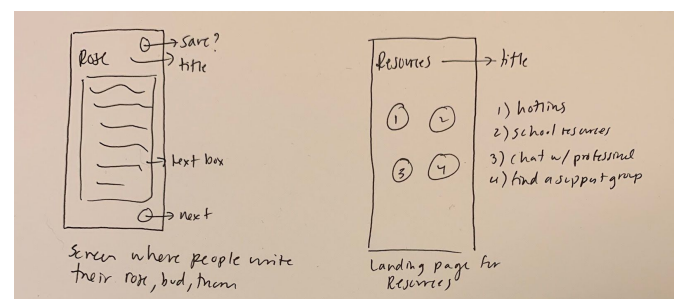 save?
Rose
title
text box
next
Screen where people write
their rose, bud, thorn
Resources
title
1
2
3
4
1) hotlines
2) school resources
3) chat w/ professional
4) find a support group
Landing page for
Resources